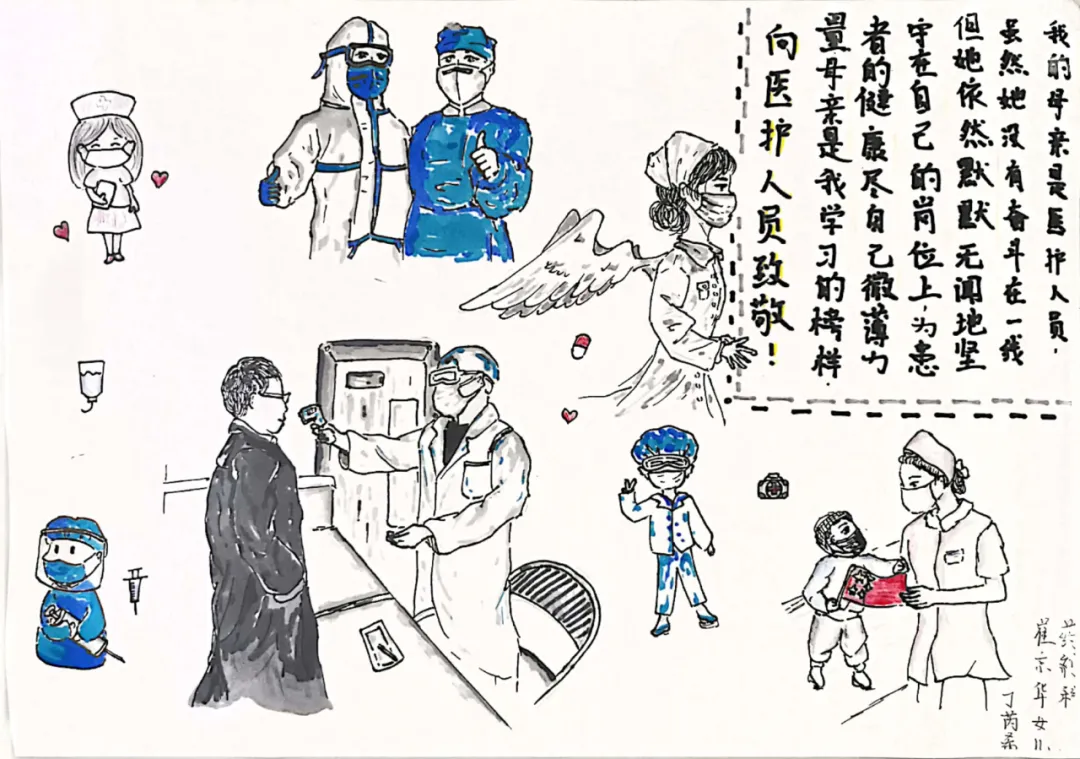 我的母亲是医护人员，
虽然她没有奋斗在一线
但她依然默默无闻地坚
守在自己的岗位上，为患
者的健康尽自己微薄力
量母亲是我学习的榜样.
向医护人员致敬！
崔京华女儿
丁芮